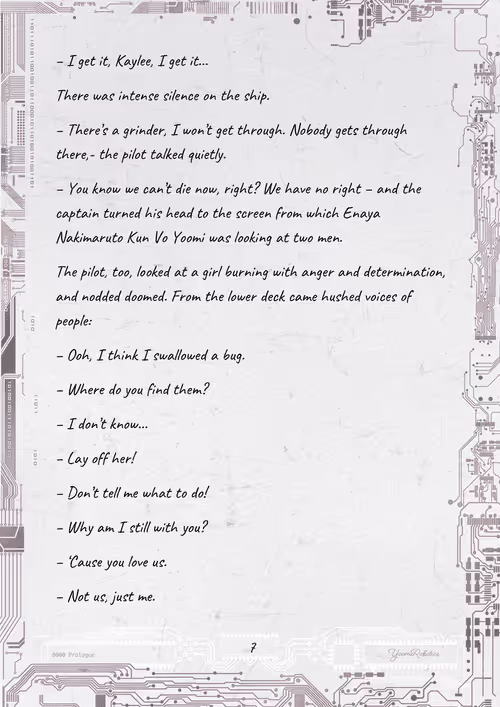 – I get it, Kaylee, I get it...
There was intense silence on the ship.
– There's a grinder, I won't get through. Nobody gets through
there,- the pilot talked quietly.
– You know we can't die now, right? We have no right – and the
captain turned his head to the screen from which Enaya
Nakimaruto Kun Vo Yoomi was looking at two men.
The pilot, too, looked at a girl burning with anger and determination,
and nodded doomed. From the lower deck came hushed voices of
people:
– Ooh, I think I swallowed a bug.
– Where do you find them?
– I don't know...
– Lay off her!
– Don't tell me what to do!
– Why am I still with you?
– 'Cause you love us.
– Not us, just me.
7
0000 Prologue
YoomiRobotics